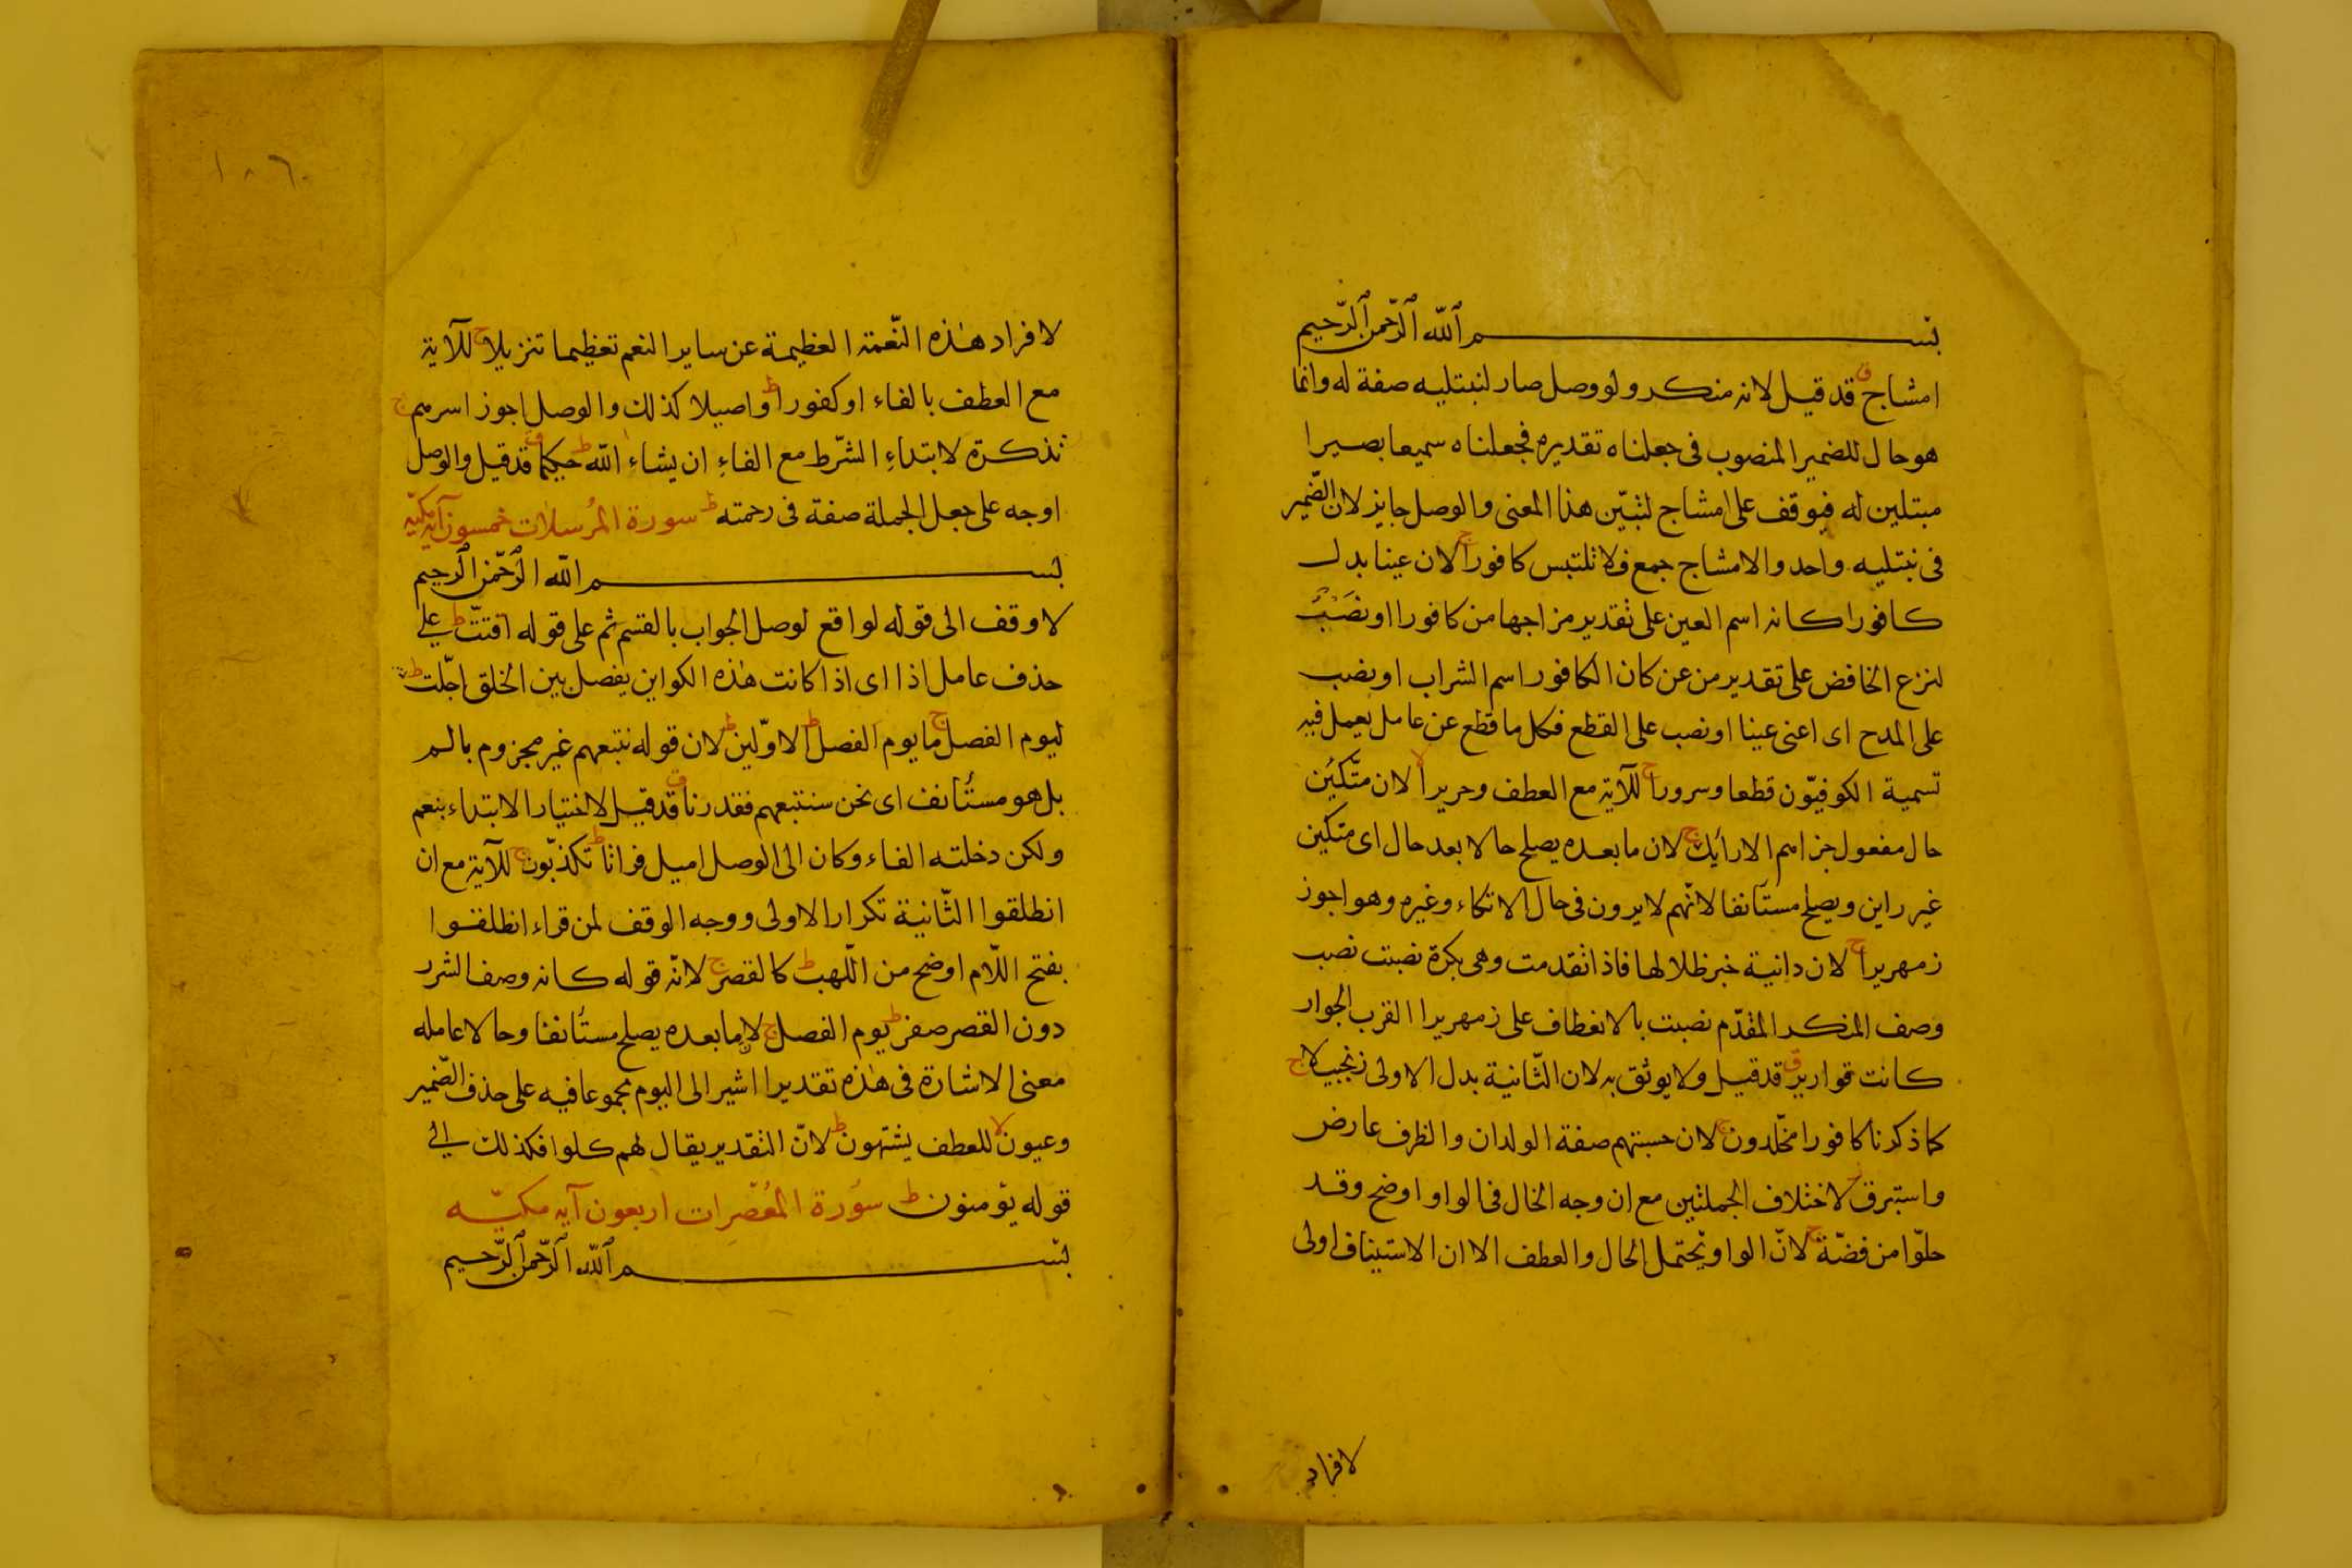 بسم الله الرحمن الرحيم
امشاج ق قد قيل لانه منكر ولو وصل صار لنبتليه صفة له وانما
هو حال للضمير المنصوب فى جعلناه تقديره فجعلناه سميعا بصيرا
مبتلين له فيوقف على امشاج لتبيّن هذا المعنى والوصل جايز لان الضّمير
فى نبتليه واحد والامشاج جمع فلا تلتبس كافورا ج لان عينا بدل
كافورا كانه اسم العين على تقدير مزاجها من كافورا او نصب
لنزع الخافض على تقدير من عن كان الكافور اسم الشراب او نصب
على المدح اى اعنى عينا او نصب على القطع فكل ما قطع عن عامل يعمل فيه
تسمية الكوفيّون قطعا وسرورا ج للآية مع العطف وحريرا لا لان متّكئين
حال مفعول جزاهم الارائك ج لان ما بعده يصلح حالا بعد حال اى متكين
غير راين ويصلح مستأنفا لانّهم لا يرون فى حال الاتكاء وغيره وهو اجوز
زمهريرا ج لان دانية خبر ظلالها فاذا تقدمت وهى بكرة نصبت نصب
وصف المنكر المقدّم نصبت بالانعطاف على زمهريرا القرب الجوار
كانت قوارير ق قد قيل ولا يوثق به لان الثّانية بدل الاولى زنجبيلا ج
كما ذكرنا كافورا مخلّدون ج لان حسبتهم صفة الولدان والظرف عارض
واستبرق ز لاختلاف الجملتين مع ان وجه الحال فى الواو اوضح وقد
حلّوا من فضّة ج لانّ الواو يحتمل الحال والعطف الا ان الاستيناف اولى
لافراد
١٨٦
لافراد هذه النّعمة العظيمة عن ساير النعم تعظيما تنزيلا ج للآية
مع العطف بالفاء او كفورا ط واصيلا كذلك والوصل اجوز اسرهم ج
تذكرة لابتداء الشّرط مع الفاء ان يشاء الله ط حكيما ق قد قيل والوصل
اوجه على جعل الجملة صفة فى رحمته ط سورة المُرسلات خمسون آية مكيّه
بسم الله الرحمن الرحيم
لا وقف الى قوله لواقع لوصل الجواب بالقسم ثم على قوله اقتت ط على
حذف عامل اذا اى اذا كانت هذه الكواين يفصل بين الخلق اجّلت ط
ليوم الفصل ج ما يوم الفصل ط الاوّلين ط لان قوله نتبعهم غير مجزوم بالم
بل هو مستأنف اى نحن سنتبعهم فقدرنا ق قد قيل لاختيار الابتداء بنعم
ولكن دخلته الفاء وكان الى الوصل اميل فراتا ط تكذّبون ج للآية مع ان
انطلقوا الثّانية تكرار الاولى ووجه الوقف لمن قراء انطلقوا
بفتح اللّام اوضح من اللّهب ط كالقصر ج لانّ قوله كانه وصف الشرر
دون القصر صفر ط يوم الفصل ج لا ما بعده يصلح مستأنفا وحالا عامله
معنى الاشارة فى هذه تقديرا اشير الى اليوم مجموعا فيه على حذف الضّمير
وعيون لا للعطف يشتهون ط لانّ التقدير يقال لهم كلوا فكذلك الى
قوله يؤمنون ط سورة المعصرات اربعون آيه مكيّه
بسم الله الرحمن الرحيم